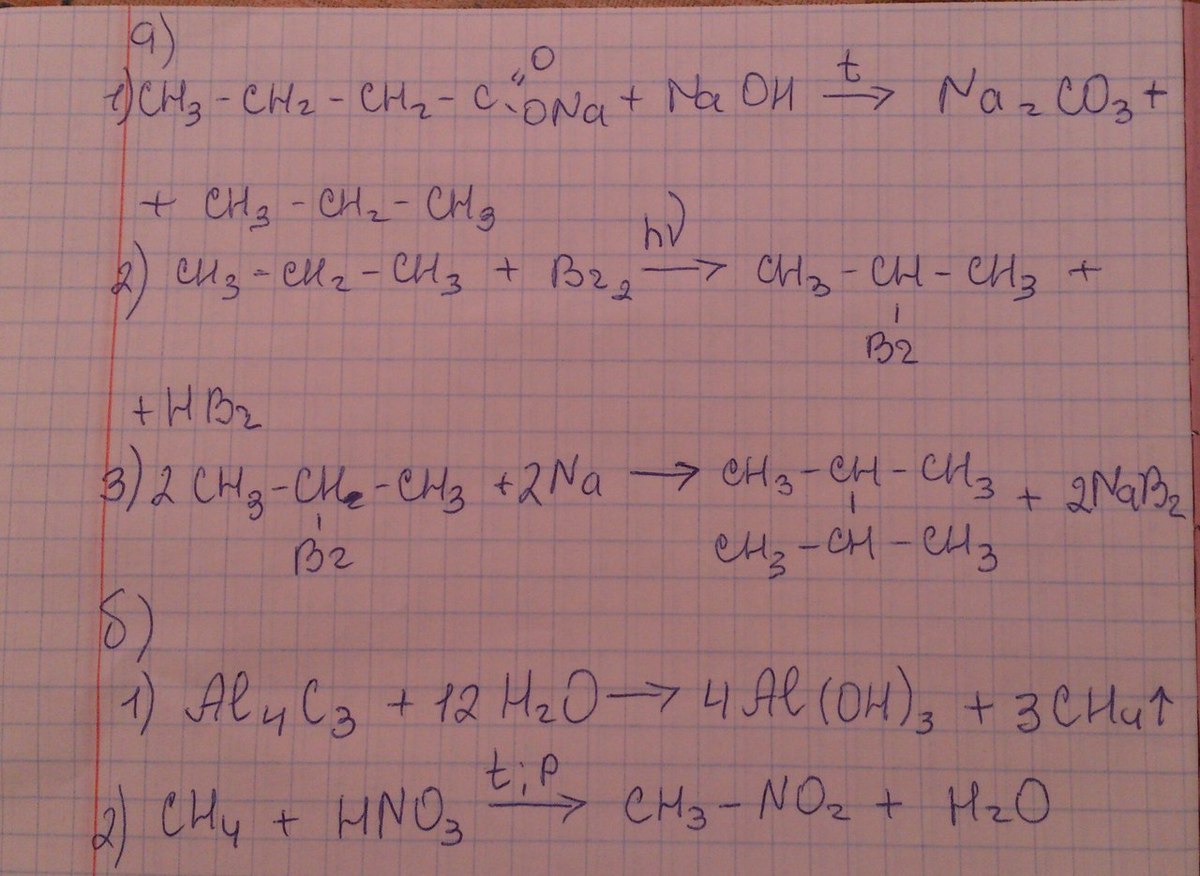 а)
1) CH₃ - CH₂ - CH₂ - C =O -ONa + NaOH →(t) Na₂CO₃ +
+ CH₃ - CH₂ - CH₃
2) CH₃ - CH₂ - CH₃ + Br₂ →(hν) CH₃ - CH - CH₃ +
Br
+ HBr
3) 2 CH₃ - CH - CH₃ + 2Na → CH₃ - CH - CH₃ + 2NaBr
Br CH₃ - CH - CH₃
б)
1) Al₄C₃ + 12 H₂O → 4Al(OH)₃ + 3CH₄↑
2) CH₄ + HNO₃ →(t; p) CH₃ - NO₂ + H₂O